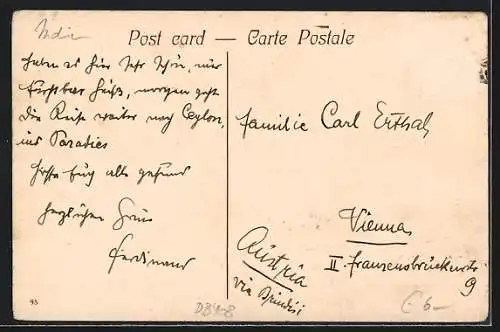 India
Post card — Carte Postale
haben es hier sehr schön, nur
furchtbar heiß, morgen geht
die Reise weiter nach Ceylon,
ins Paradies
hoffe Euch alle gesund
herzlichen Gruss
Ferdinand
Familie Carl Erthal
Vienna
II. Franzensbrückenstr
9
Austria
via Brindisi
93
6-